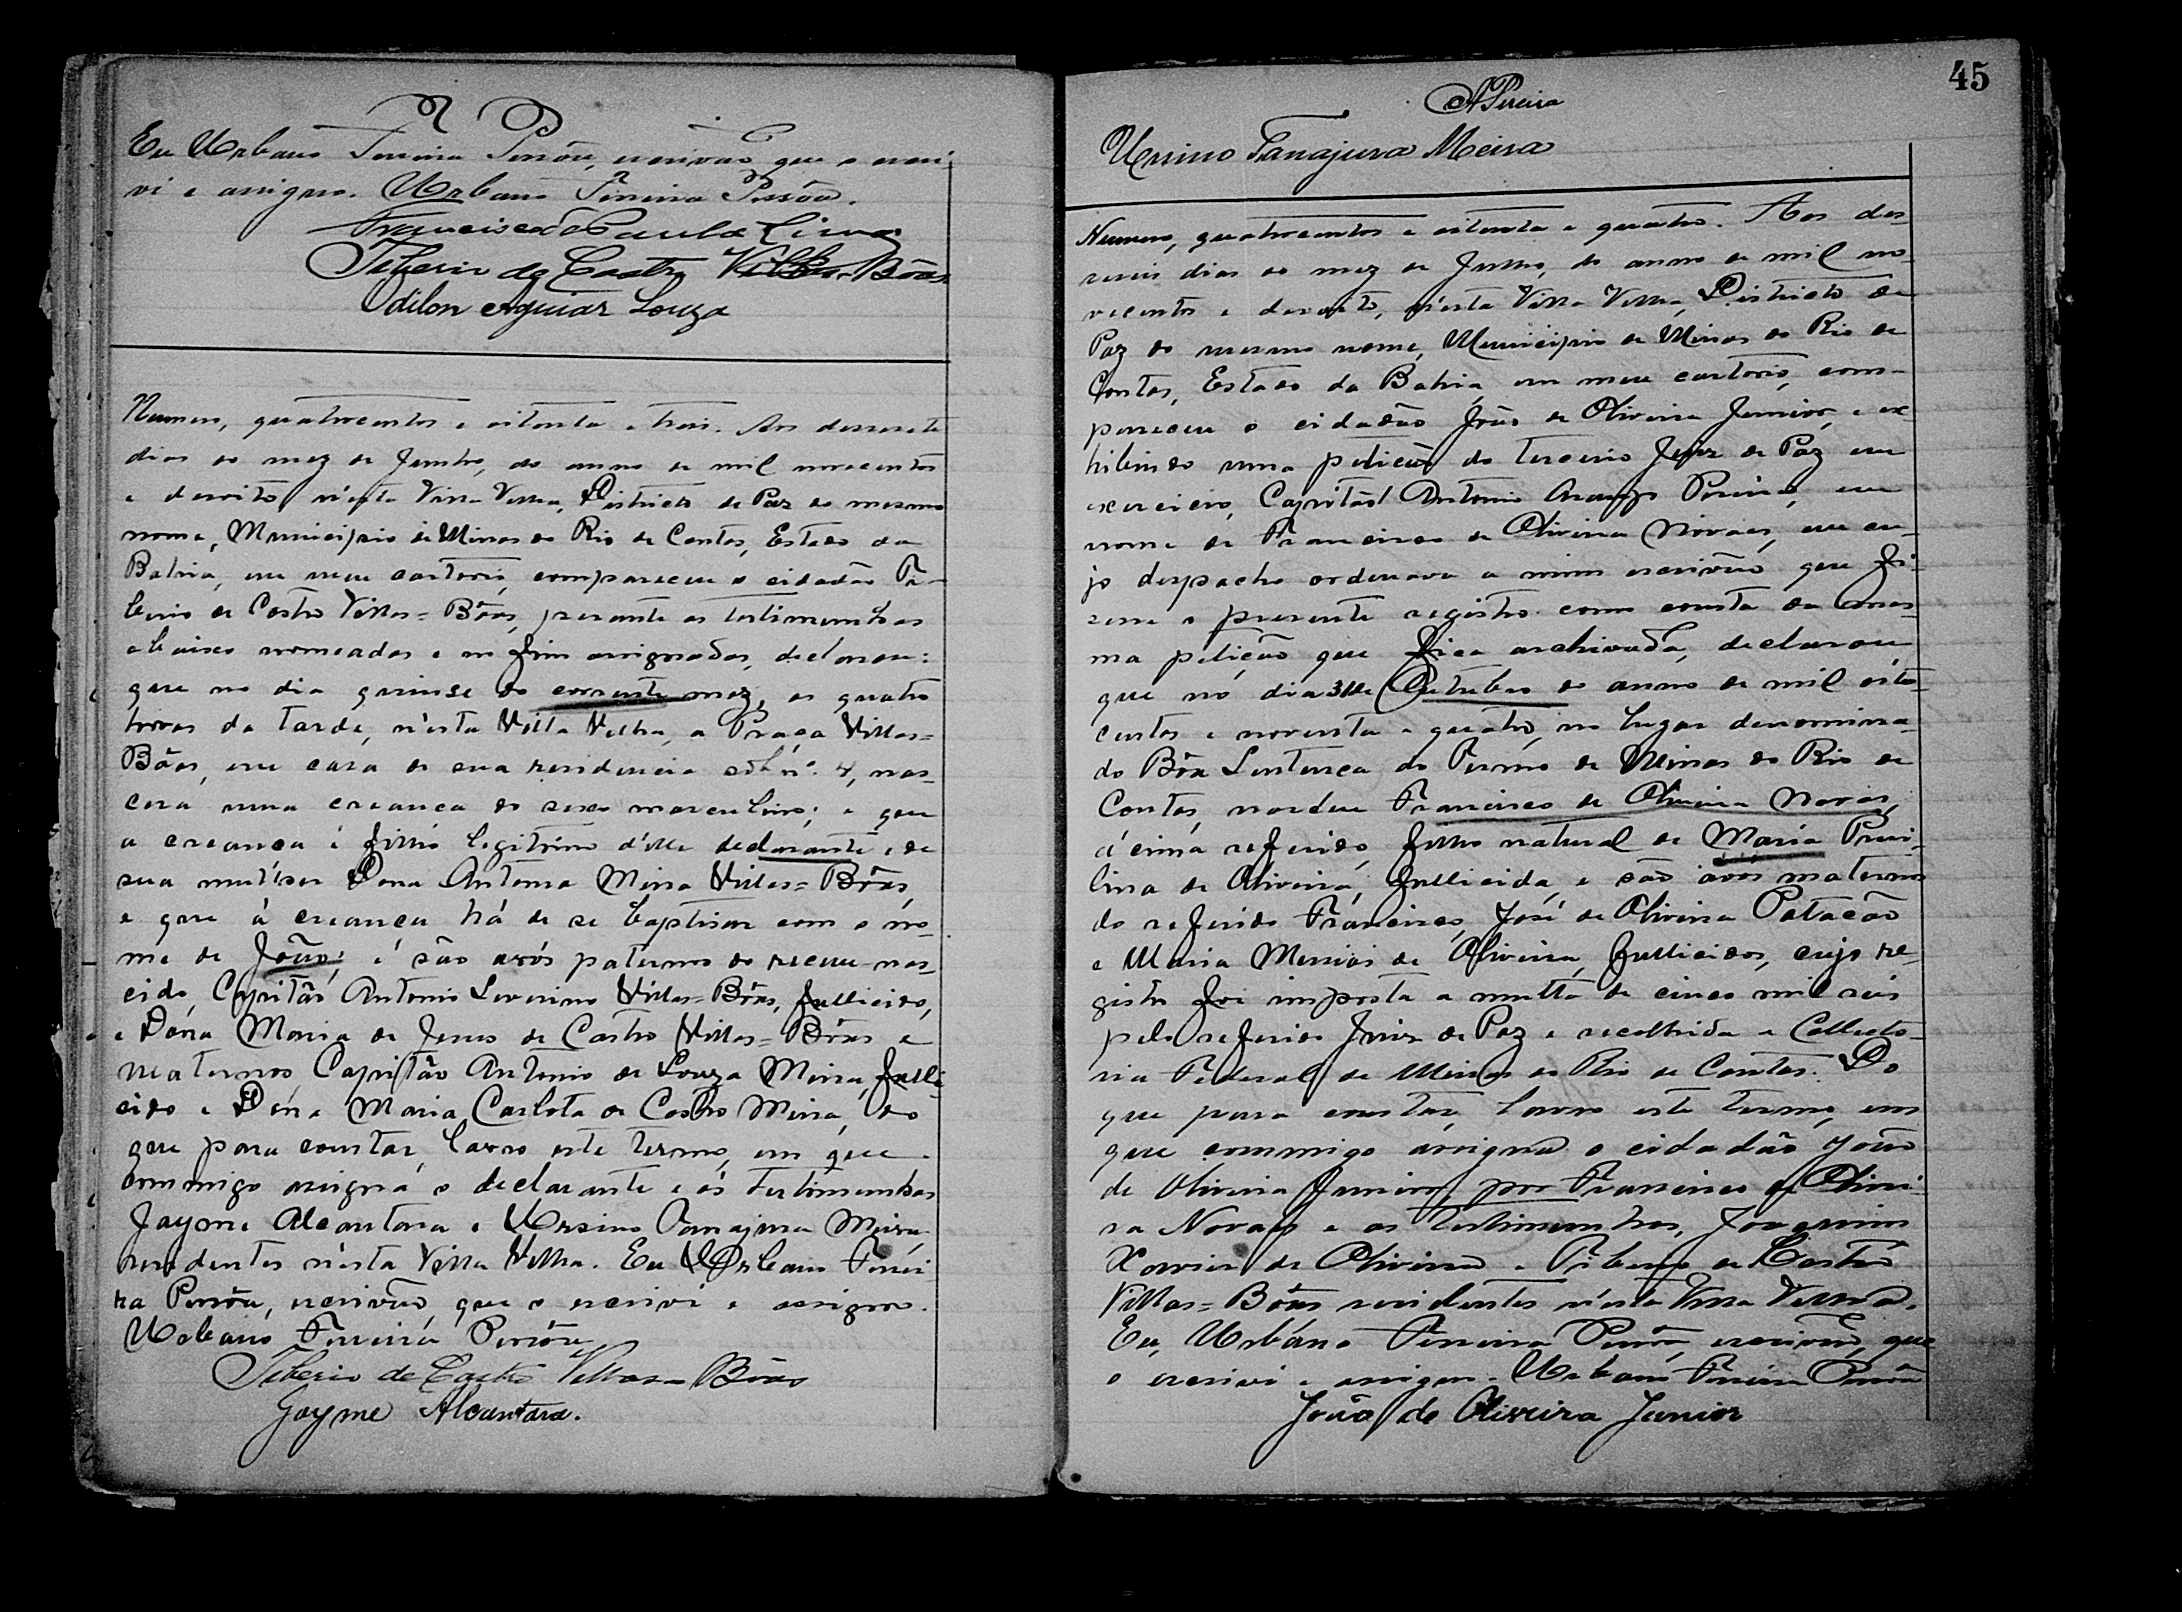 Eu Urbano Ferreira Pessôa, escrivão que o escri-
vi e assigno. Urbano Ferreira Pessôa.
Francisco de Paula Lima
Tiberio de Castro Villas-Bôas
Odilon Aguiar Souza
Numero, quatrocentos e oitenta e trez. Aos desesete
dias do mez de Junho, do anno de mil novecentos
e desoito n'esta Villa Velha, Districto de Paz do mesmo
nome, Municipio de Minas do Rio de Contas, Estado da
Bahia, em meu cartorio, compareceu o cidadão Ti-
berio de Castro Villas=Bôas, perante as testimunhas
abaixo nomeadas e no fim assignadas, declarou:
que no dia quinse do corrente mez, as quatro
horas da tarde, n'esta Villa Velha, a Praça Villas=
Bôas, em casa de sua residencia sob nº 4, nas-
cera uma creança do sexo masculino; e que
a creança é filho legitimo d'elle declarante e de
sua mulher Dona Antonia Meira Villas=Bôas,
e que á creança há de se baptisar com o no-
me de João; e são avós paternos do recem-nas-
cido, Capitão Antonio Severino Villas=Bôas, fallicido,
e Dona Maria de Jesus de Castro Villas=Bôas e
maternos, Capitão Antonio de Souza Meira, falli-
cido e Dona Maria Carlota de Castro Meira, do
que para constar, lavro este termo, em que
commigo assigna o declarante e as testimunhas
Jayme Alcantara e Ursino Tanajura Meira
residentes n'esta Villa Velha. Eu Urbano Ferrei-
ra Pessôa, escrivão, que o escrivi e assigno.
Urbano Ferreira Pessôa
Tiberio de Castro Villas-Bôas
Jayme Alcantara.
45
APereira
Ursino Tanajura Meira
Numero, quatrocentos e oitenta e quatro. Aos des-
eseis dias do mez de Julho, do anno de mil no-
vecentos e desoito, n'esta Villa Velha, Districto de
Paz do mesmo nome, Municipio de Minas do Rio de
Contas, Estado da Bahia, em meu cartorio, com-
pareceu o cidadão João de Oliveira Junior, e ex-
hibindo uma petição do terceiro Juiz de Paz em
exercicio, Capitão Antonio Pereira, em
nome de Francisco de Oliveira Novaes, em cu-
jo despacho ordenava a mim escrivão que fi-
zesse o presente registro como consta da mes-
ma petição que fica archivada, declarou
que no dia 31 de Outubro do anno de mil oito-
centos e noventa e quatro, no lugar denomina-
do Bôa Sentença do Termo de Minas do Rio de
Contas, nasceu Francisco de Oliveira Novais,
ácima referido, filho natural de Maria
de Oliveira, fallicida, e são avós maternos
do referido Francisco, José de Oliveira Patacão
e Maria Messias de Oliveira, fallicidos, cujo re-
gistro foi imposta a multa de cinco mil reis
pelo referido Juiz de Paz e recolhida a Collecto-
ria Federal de Minas do Rio de Contas. Do
que para constar, lavro este termo, em
que commigo assigna o cidadão João
de Oliveira Junior, por Francisco de Olivei-
ra Novaes e as testimunhas, Joaquim
Xavier de Oliveira e Tiberio de Castro
Villas=Bôas residentes n'esta Villa Velha.
Eu, Urbano Ferreira Pessôa, escrivão, que
o escrivi e assigno. Urbano Ferreira Pessôa
João de Oliveira Junior